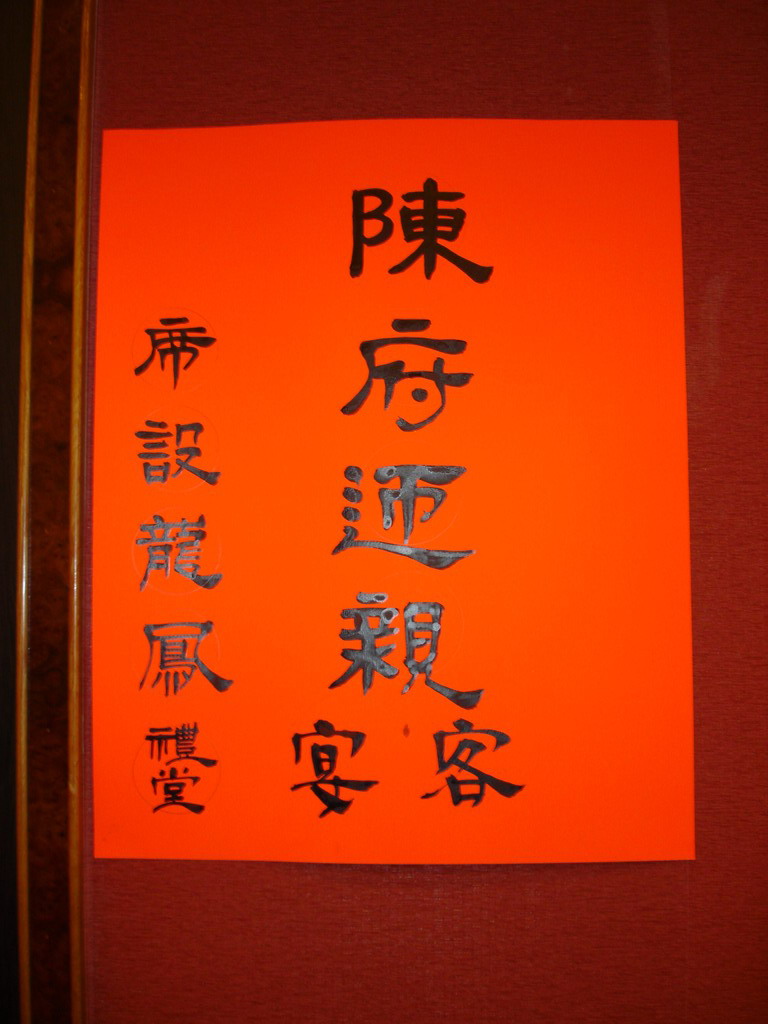 陳府迎親客宴
席設龍鳳禮堂